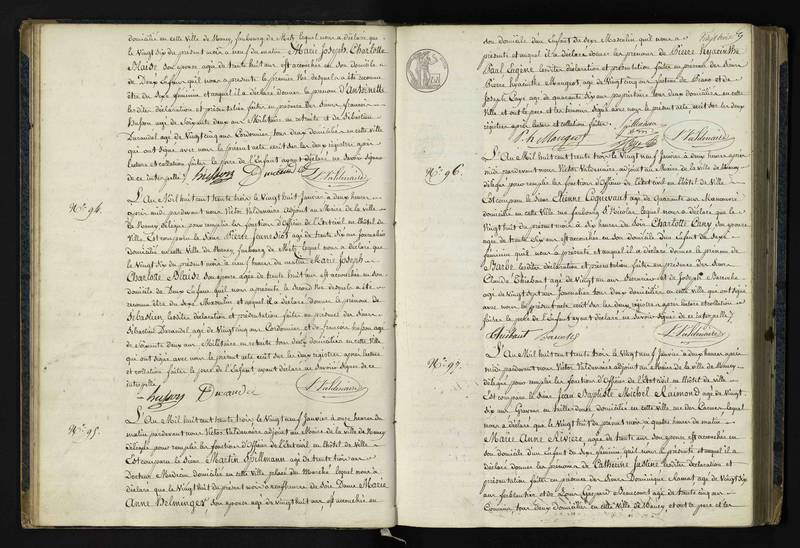 domicilié en cette Ville de Nancy, faubourg de Metz lequel nous a déclaré que
le Vingt Six du présent mois à neuf du matin Marie Joseph Charlotte
Blaise son épouse agée de trente huit ans est accouchée en son domicile
de Deux Enfans qu'il nous a présenté le premier Né desquels a été reconnu
être du Sexe féminin et auquel il a déclaré donner le prénom d'Antoinette
lesdites déclaration et présentation faites en présence des Sieurs francois
husson agé de Soixante deux ans Militaire en retraite et de Sébastien
Durandel agé de Vingt cinq ans Cordonnier, tous deux domiciliés en cette ville
qui ont signé avec nous le présent acte écrit sur les deux registres après
lecture et collation faites le père de l'Enfant ayant déclaré ne Savoir Signer
de ce interpellé
husson Durandel
N.° 94.
L'An Mil huit cent trente trois le Vingt huit Janvier à deux heures
après midi pardevant nous Victor Valdenaire Adjoint au Maire de la Ville
de Nancy, délégué pour remplir les fonctions d'Officier de l'Etat civil en l'hôtel de
Ville Est comparu le Sieur Pierre agé de trente Six ans Journalier
domicilié en cette Ville de Nancy, faubourg de Metz lequel nous a déclaré que
le Vingt Six du présent mois à neuf heures du matin Marie Joseph
Charlotte Blaise Son épouse agée de trente huit ans est accouchée en Son
domicile de Deux Enfans qu'il nous a présenté le Second Né desquels a été
reconnu être du Sexe Masculin et auquel il a déclaré donner le prénom de
Sébastien, lesdites déclaration et présentation faites en présence des Sieurs
Sébastien Durandel agé de Vingt cinq ans Cordonnier et de francois husson agé
de Soixante deux ans Militaire en retraite tous deux domiciliés en cette Ville
qui ont signé avec nous le présent acte écrit sur les deux registres, après lecture
et collation faites le père de l'Enfant ayant déclaré ne Savoir Signer de ce
interpellé
husson Durandel
N.° 95.
L'An Mil huit cent trente trois le Vingt neuf Janvier à onze heures du
matin pardevant nous Victor Valdenaire adjoint au Maire de la Ville de Nancy
délégué pour remplir les fonctions d'Officier de l'Etat civil en l'hôtel de Ville
Est comparu le Sieur Martin agé de trente trois ans
Docteur Médecin domicilié en cette Ville place du Marché lequel nous a
déclaré que le Vingt huit du présent mois à neuf heures du Soir Dame Marie
Anne Belminger son épouse agée de Vingt huit ans est accouchée en
son domicile d'un Enfant du Sexe Masculin qu'il nous a
présenté et auquel il a déclaré donner les prénoms de Pierre Hyacinthe
Paul Eugène lesdites déclaration et présentation faites en présence des Sieurs
Pierre hyacinthe agé de Vingt cinq ans facteur de Piano et de
Joseph agé de quarante Six ans propriétaire tous deux domiciliés en cette
Ville et ont le père et les témoins Signé avec nous le présent acte écrit sur les deux
registres après lecture et collation faites.
N.° 96.
L'An Mil huit cent trente trois le Vingt neuf Janvier à deux heures après
midi pardevant nous Victor Valdenaire, adjoint au Maire de la Ville de Nancy
délégué pour remplir les fonctions d'Officier de l'Etat civil en l'hôtel de Ville
Est comparu le Sieur Etienne agé de Quarante ans Manoeuvre
domicilié en cette Ville rue faubourg St Nicolas lequel nous a déclaré que le
Vingt huit du présent mois à Six heures du Soir Charlotte Son épouse
agée de trente Six ans est accouchée en Son domicile d'un Enfant du Sexe
féminin qu'il nous a présenté et auquel il a déclaré donner le prénom de
Barbe lesdites déclaration et présentation faites en présence des Sieurs
Claude Thiébaut agé de Vingt un ans et de Joseph
agé de Vingt Sept ans Journalier tous deux domiciliés en cette Ville qui ont signé
avec nous le présent acte écrit sur les deux registres après lecture et collation
faites le père de l'Enfant ayant déclaré ne Savoir Signer de ce interpellé
Thiébaut
N.° 97.
L'An Mil huit cent trente trois le Vingt neuf Janvier à deux heures après
midi pardevant nous Victor Valdenaire adjoint au Maire de la Ville de Nancy
délégué pour remplir les fonctions d'Officier de l'Etat civil en l'hôtel de Ville
Est comparu le Sieur Jean Baptiste Michel Raimond agé de Vingt
Six ans Graveur en taille douce domicilié en cette Ville rue des Carmes lequel
nous a déclaré que le Vingt huit du présent mois à quatre heures du matin
Marie Anne Rivière agée de trente ans Son épouse est accouchée en
Son domicile d'un Enfant du Sexe féminin qu'il nous a présenté et auquel il a
déclaré donner les prénoms de Catherine lesdites déclaration et
présentation faites en présence des Sieurs Dominique agé de Vingt Six
ans ferblantier et de Louis Gaspard agé de trente cinq ans
tous deux domiciliés en cette Ville de Nancy, et ont le père et les